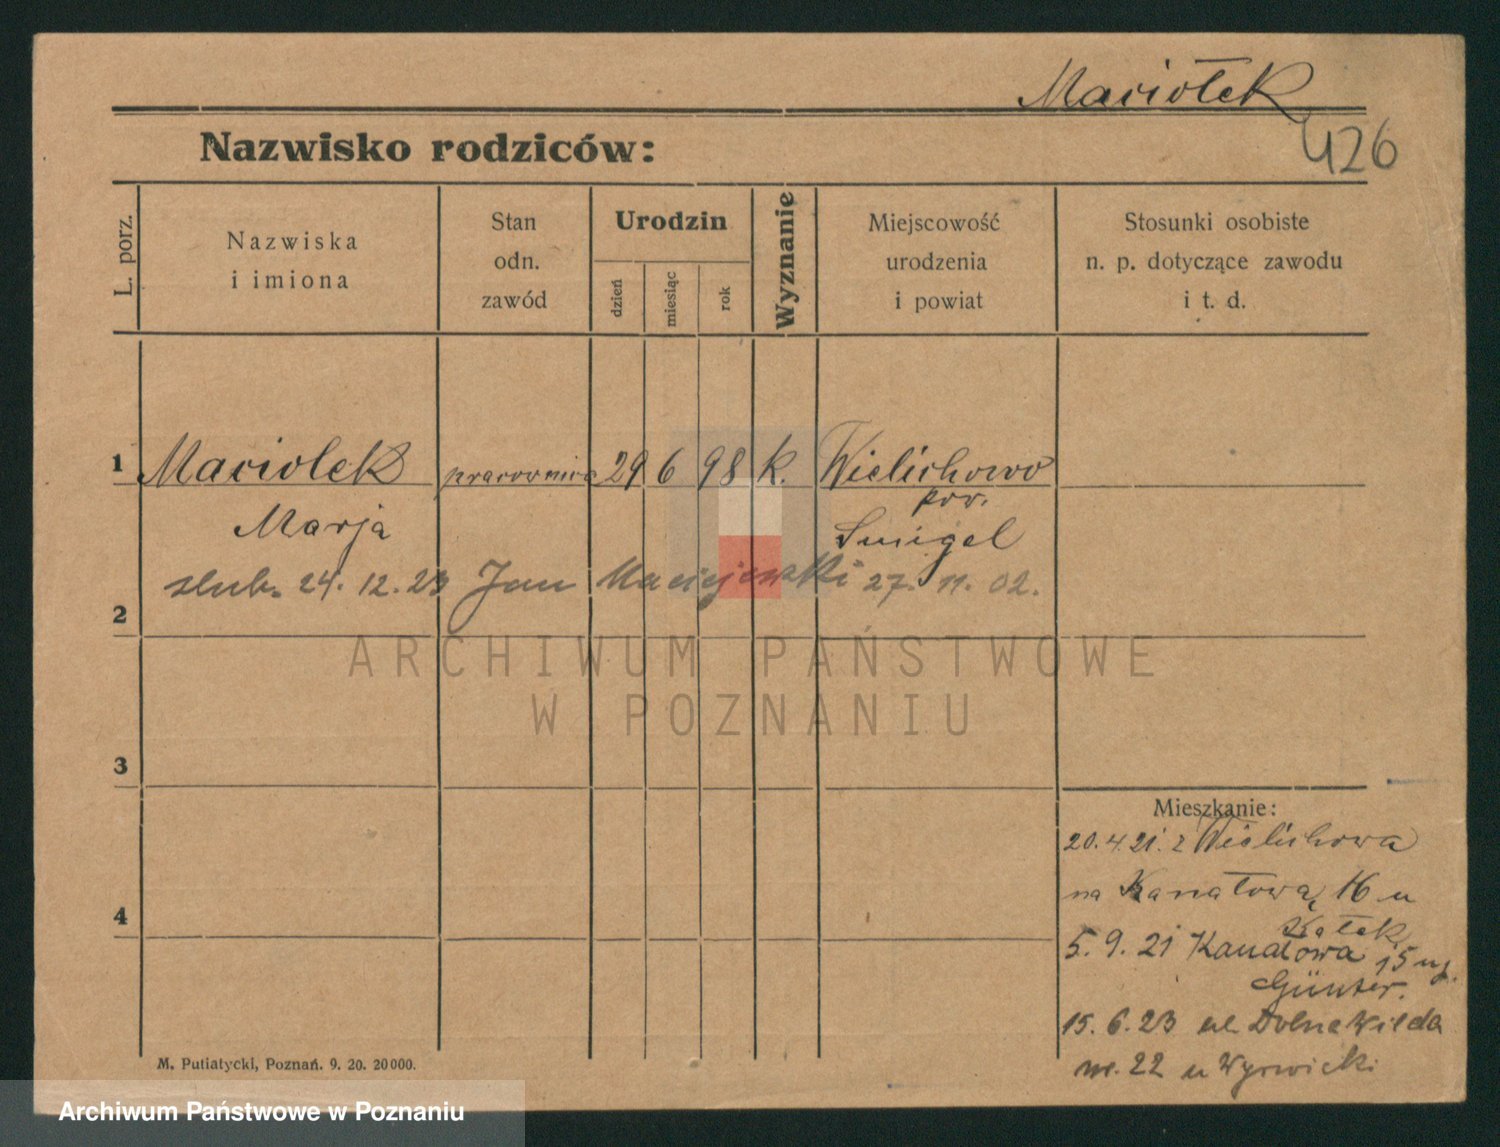 Maciołek
426
Nazwisko rodziców:
L. porz.
Nazwiska
i imiona
Stan
odn.
zawód
Urodzin
dzień
miesiąc
rok
Wyznanie
Miejscowość
urodzenia
i powiat
Stosunki osobiste
n. p. dotyczące zawodu
i t. d.
1 Maciolek pracownica 29 6 98 k. Wielichowo
pow.
Marja Smigel
slub. 24. 12. 23 Jan Maciejewski 27. 11. 02.
2
ARCHIWUM PAŃSTWOWE
W POZNANIU
3
Mieszkanie:
20. 4. 21. z Wielichowa
na Kanałową 16 u
4
Kątek
5. 9. 21 Kanałowa 15 u
Günter.
15. 6. 23 ul Dolna Wilda
nr. 22 u Wyrwicki
M. Putiatycki, Poznań. 9. 20. 20000.
Archiwum Państwowe w Poznaniu